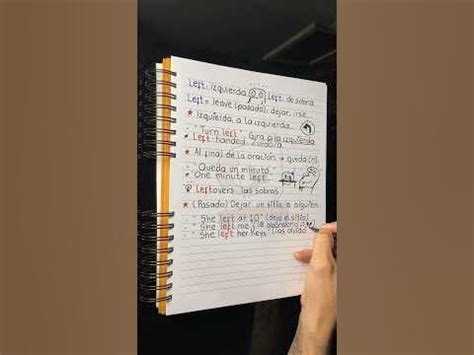 Left: izquierda Left: de sobra
Left = leave (pasado): dejar, irse.
★ Izquierda, a la izquierda
- "Turn left" - Gira a la izquierda
* Left-handed: Zurdo/a
★ Al final de la oración → queda(n)
- "Queda un minuto"
* "One minute left"
Leftovers: las sobras
★ (Pasado) Dejar un sitio, a alguien
- "She left at 10" (dejó el sitio)
- "She left me" (le abandonó)
- "She left her keys" (las olvidó